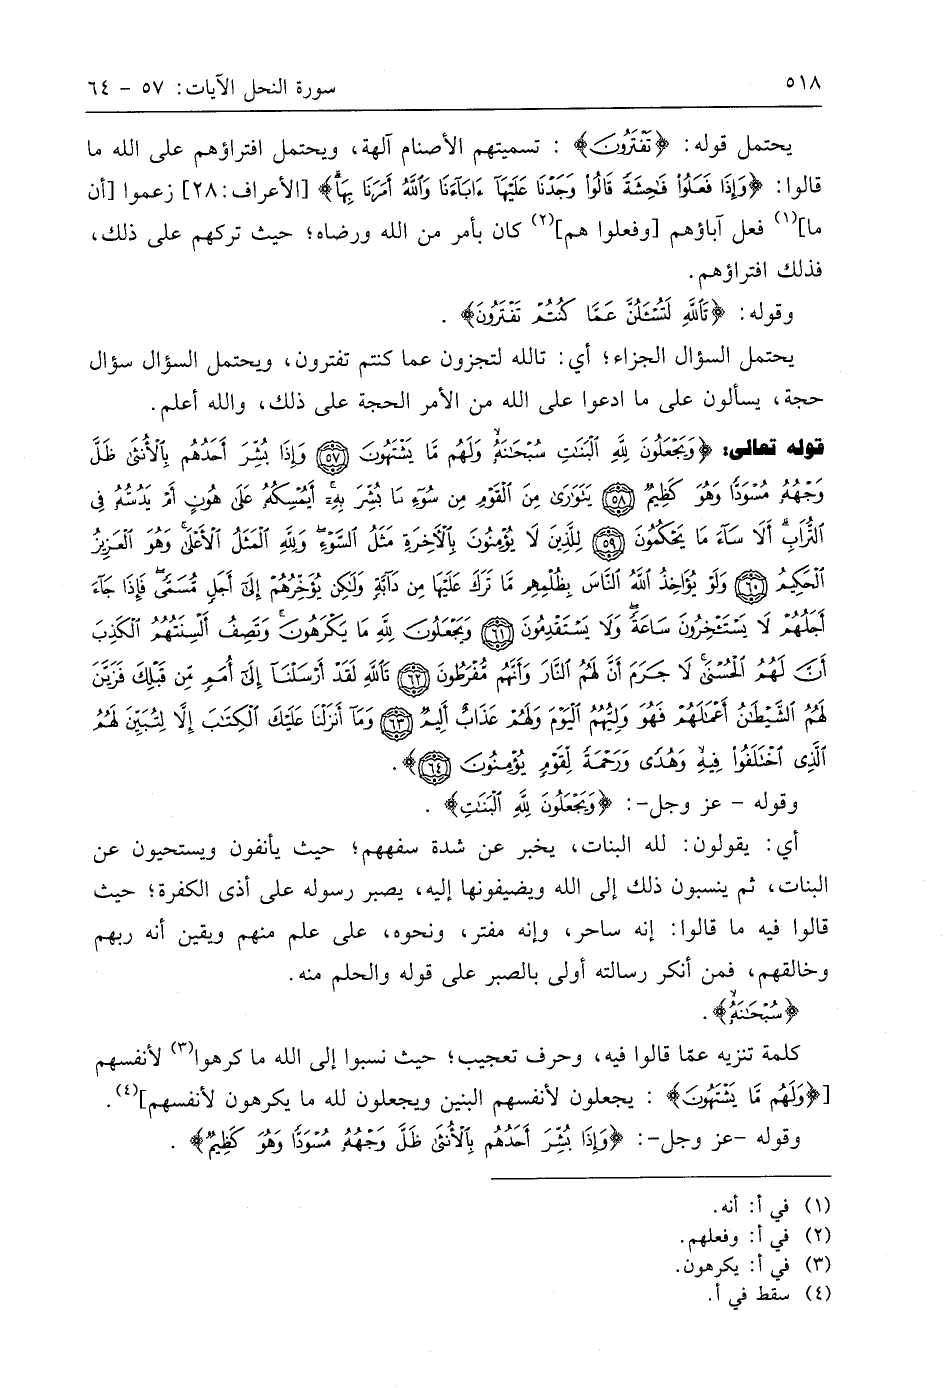 ٥١٨ سورة النحل الآيات: ٥٧ - ٦٤
يحتمل قوله: ﴿تَفْتَرُونَ﴾ : تسميتهم الأصنام آلهة، ويحتمل افتراؤهم على الله ما
قالوا: ﴿وَإِذَا فَعَلُوا۟ فَٰحِشَةً قَالُوا۟ وَجَدْنَا عَلَيْهَآ ءَابَآءَنَا وَٱللَّهُ أَمَرَنَا بِهَاۗ﴾ [الأعراف: ٢٨] زعموا [أن
ما](١) فعل آباؤهم [وفعلوا هم](٢) كان بأمر من الله ورضاه؛ حيث تركهم على ذلك،
فذلك افتراؤهم.
وقوله: ﴿تَٱللَّهِ لَتُسْـَٔلُنَّ عَمَّا كُنتُمْ تَفْتَرُونَ﴾ .
يحتمل السؤال الجزاء؛ أي: تالله لتجزون عما كنتم تفترون، ويحتمل السؤال سؤال
حجة، يسألون على ما ادعوا على الله من الأمر الحجة على ذلك، والله أعلم.
قوله تعالى: ﴿وَيَجْعَلُونَ لِلَّهِ ٱلْبَنَٰتِ سُبْحَٰنَهُۥۙ وَلَهُم مَّا يَشْتَهُونَ ٥٧ وَإِذَا بُشِّرَ أَحَدُهُم بِٱلْأُنثَىٰ ظَلَّ
وَجْهُهُۥ مُسْوَدًّا وَهُوَ كَظِيمٌ ٥٨ يَتَوَٰرَىٰ مِنَ ٱلْقَوْمِ مِن سُوٓءِ مَا بُشِّرَ بِهِۦٓۚ أَيُمْسِكُهُۥ عَلَىٰ هُونٍ أَمْ يَدُسُّهُۥ فِى
ٱلتُّرَابِۗ أَلَا سَآءَ مَا يَحْكُمُونَ ٥٩ لِلَّذِينَ لَا يُؤْمِنُونَ بِٱلْأَخِرَةِ مَثَلُ ٱلسَّوْءِۖ وَلِلَّهِ ٱلْمَثَلُ ٱلْأَعْلَىٰۚ وَهُوَ ٱلْعَزِيزُ
ٱلْحَكِيمُ ٦٠ وَلَوْ يُؤَاخِذُ ٱللَّهُ ٱلنَّاسَ بِظُلْمِهِم مَّا تَرَكَ عَلَيْهَا مِن دَآبَّةٍ وَلَٰكِن يُؤَخِّرُهُمْ إِلَىٰٓ أَجَلٍ مُّسَمًّىۖ فَإِذَا جَآءَ
أَجَلُهُمْ لَا يَسْتَـْٔخِرُونَ سَاعَةًۖ وَلَا يَسْتَقْدِمُونَ ٦١ وَيَجْعَلُونَ لِلَّهِ مَا يَكْرَهُونَۚ وَتَصِفُ أَلْسِنَتُهُمُ ٱلْكَذِبَ
أَنَّ لَهُمُ ٱلْحُسْنَىٰۚ لَا جَرَمَ أَنَّ لَهُمُ ٱلنَّارَ وَأَنَّهُم مُّفْرَطُونَ ٦٢ تَٱللَّهِ لَقَدْ أَرْسَلْنَآ إِلَىٰٓ أُمَمٍ مِّن قَبْلِكَ فَزَيَّنَ
لَهُمُ ٱلشَّيْطَٰنُ أَعْمَٰلَهُمْ فَهُوَ وَلِيُّهُمُ ٱلْيَوْمَ وَلَهُمْ عَذَابٌ أَلِيمٌ ٦٣ وَمَآ أَنزَلْنَا عَلَيْكَ ٱلْكِتَٰبَ إِلَّا لِتُبَيِّنَ لَهُمُ
ٱلَّذِى ٱخْتَلَفُوا۟ فِيهِۙ وَهُدًى وَرَحْمَةً لِّقَوْمٍ يُؤْمِنُونَ ٦٤﴾.
وقوله - عز وجل-: ﴿وَيَجْعَلُونَ لِلَّهِ ٱلْبَنَٰتِ﴾ .
أي: يقولون: لله البنات، يخبر عن شدة سفههم؛ حيث يأنفون ويستحيون عن
البنات، ثم ينسبون ذلك إلى الله ويضيفونها إليه، يصبر رسوله على أذى الكفرة؛ حيث
قالوا فيه ما قالوا: إنه ساحر، وإنه مفتر، ونحوه، على علم منهم ويقين أنه ربهم
وخالقهم، فمن أنكر رسالته أولى بالصبر على قوله والحلم منه.
﴿سُبْحَٰنَهُۥۙ﴾ .
كلمة تنزيه عمّا قالوا فيه، وحرف تعجيب؛ حيث نسبوا إلى الله ما كرهوا(٣) لأنفسهم
[﴿وَلَهُم مَّا يَشْتَهُونَ﴾ : يجعلون لأنفسهم البنين ويجعلون لله ما يكرهون لأنفسهم](٤).
وقوله -عز وجل-: ﴿وَإِذَا بُشِّرَ أَحَدُهُم بِٱلْأُنثَىٰ ظَلَّ وَجْهُهُۥ مُسْوَدًّا وَهُوَ كَظِيمٌ﴾ .
(١) في أ: أنه.
(٢) في أ: وفعلهم.
(٣) في أ: يكرهون.
(٤) سقط في أ.